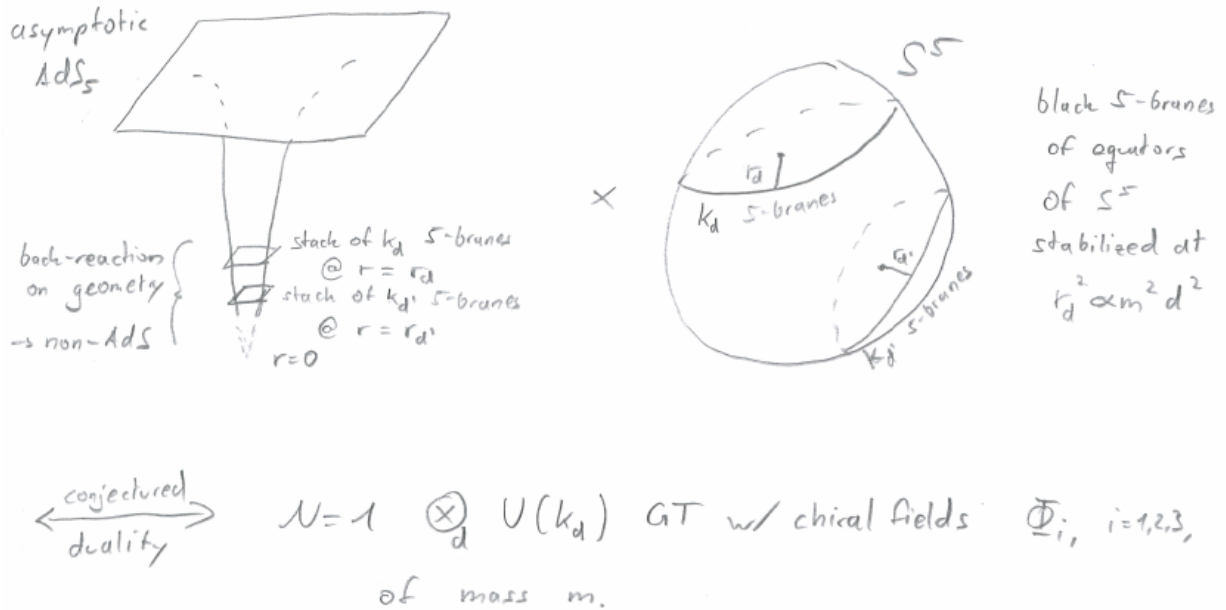 asymptotic
AdS₅
back-reaction
on geometry
→ non-AdS
stack of k_d 5-branes
@ r = r_d
stack of k_d' 5-branes
@ r = r_d'
r=0
×
S⁵
r_d
k_d 5-branes
r_d'
k_d' 5-branes
black 5-branes
of equators
of S⁵
stabilized at
r_d² ∝ m² d²
conjectured
duality
N=1 ⊗_d U(k_d) GT w/ chiral fields Φ_i, i=1,2,3,
of mass m.